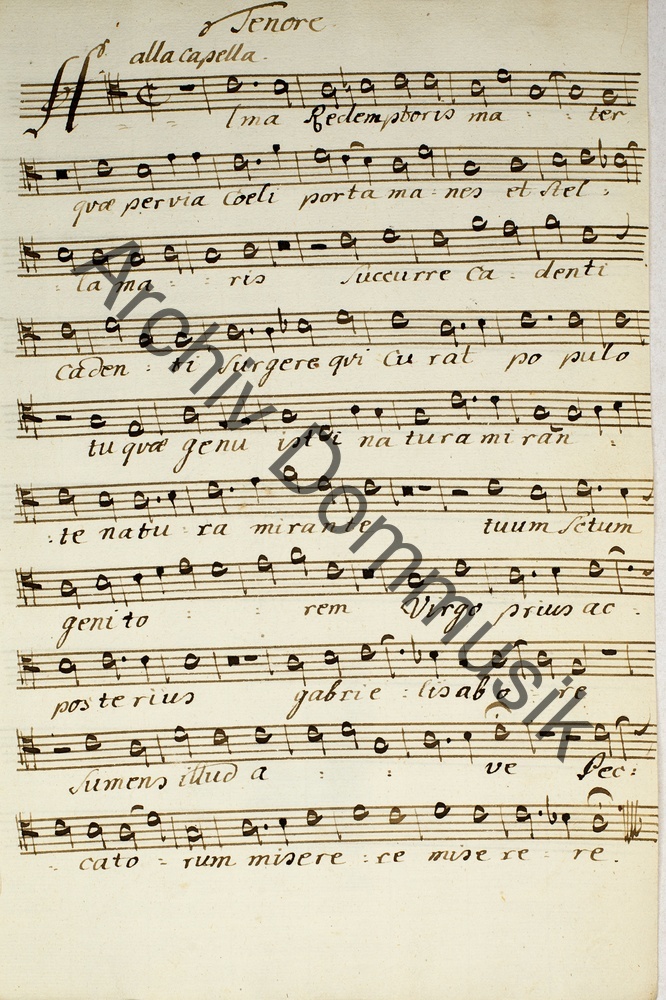 Tenore
alla capella.
A lma Redemptoris ma : : ter
quæ pervia Coeli porta ma - nes et stel -
la ma : : ris succurre Ca - denti
caden : ti surgere qui Cu rat po pulo
tu quæ genu isti na tura miran :
: te natu : ra mirante tuum sctum
geni to : : rem Virgo prius ac -
posterius gabrie : lis ab o : re
sumens illud a : : ve Pec :
: cato - rum misere : re mise re : re .
Archiv Dommusik